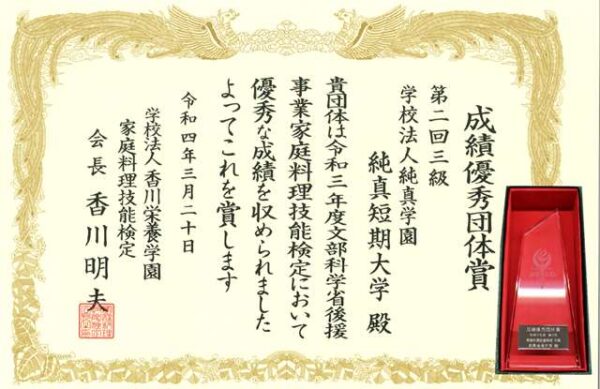 成績優秀団体賞
第二回三級
学校法人純真学園
純真短期大学 殿
貴団体は令和三年度文部科学省後援
事業家庭料理技能検定において
優秀な成績を収められました
よってこれを賞します
令和四年三月二十日
学校法人香川栄養学園
家庭料理技能検定
会長 香川明夫
成績優秀団体賞